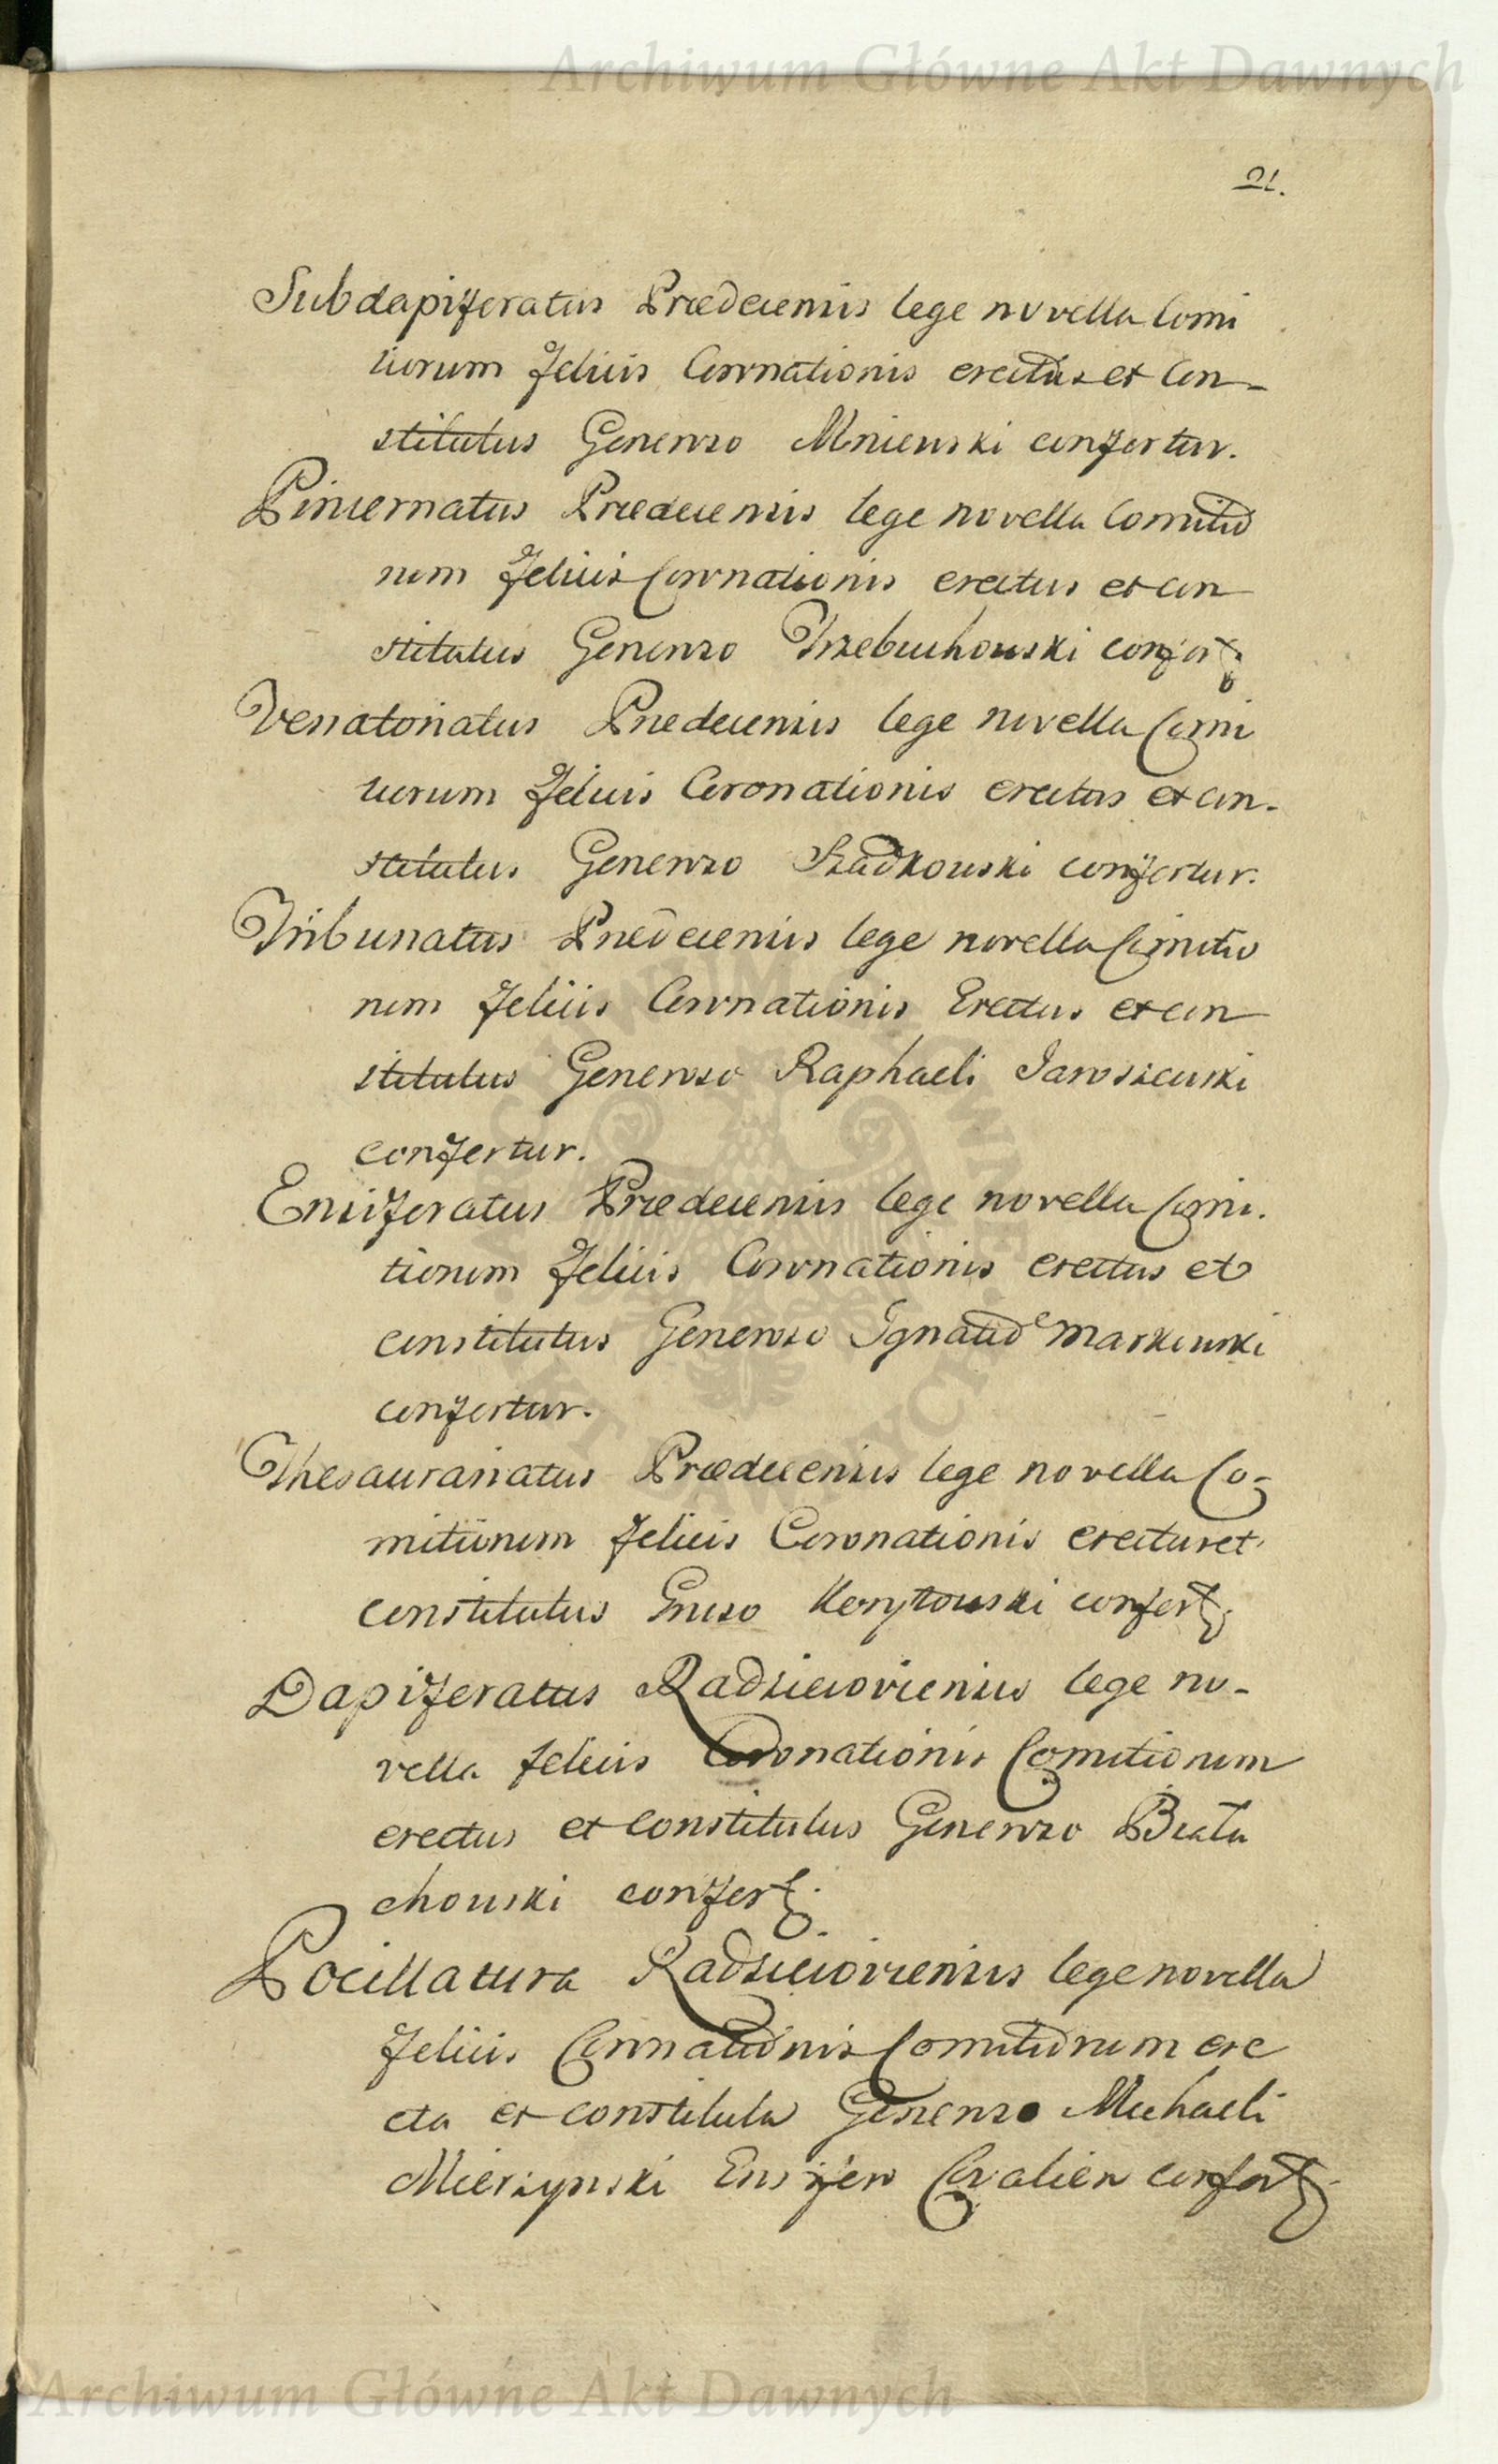 Archiwum Główne Akt Dawnych
21.
Subdapiferatus Prædecensis lege novella Comi
tiorum felicis Coronationis erectus et Con-
stitutus Generoso Mniewski confertur.
Pincernatus Prædecensis lege novella Comitio
rum felicis Coronationis erectus et con
stitutus Generoso Trzebuchowski confert.
Venatoriatus Prædecensis lege novella Comi
tiorum felicis Coronationis erectus et con-
stitutus Generoso Szadkowski confertur.
Tribunatus Prædecensis lege novella Comitio
rum felicis Coronationis Erectus et con
stitutus Generoso Raphaeli Jaroszewski
confertur.
Ensiferatus Prædecensis lege novella Comi-
tiorum felicis Coronationis erectus et
constitutus Generoso Ignatio Markowski
confertur.
Thesaurariatus Prædecensis lege novella Co-
mitiorum felicis Coronationis erectus et
constitutus Gnoso Korytowski confert.
Dapiferatus Radzieioviensis lege no-
vella felicis Coronationis Comitiorum
erectus et Constitutus Generoso Biała
chowski confert.
Pocillatura Radzieioviensis lege novella
felicis Coronationis Comitiorum ere
cta et constituta Generoso Michaeli
Mierzynski Ensifero Covaliens confert.
Archiwum Główne Akt Dawnych